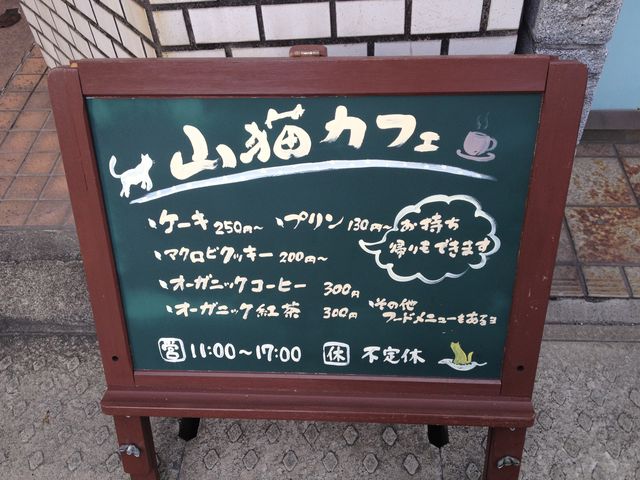 山猫カフェ
ケーキ 250円~ プリン 130円~
お持ち
帰りもできます
マクロビクッキー 200円~
オーガニックコーヒー 300円
オーガニック紅茶 300円
その他
フードメニューもあるヨ
営 11:00~17:00 休 不定休